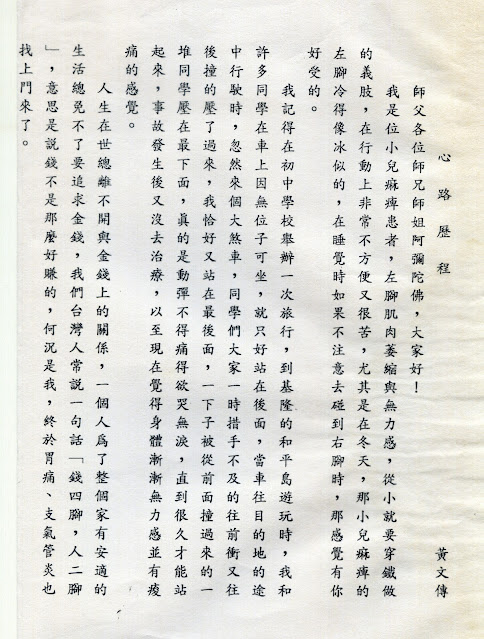 心路歷程
黃文傳
師父各位師兄師姐阿彌陀佛，大家好！
我是位小兒痲痺患者，左腳肌肉萎縮與無力感，從小就要穿鐵做
的義肢，在行動上非常不方便又很苦，尤其是在冬天，那小兒痲痺的
左腳冷得像冰似的，在睡覺時如果不注意去碰到右腳時，那感覺有你
好受的。
我記得在初中學校舉辦一次旅行，到基隆的和平島遊玩時，我和
許多同學在車上因無位子可坐，就只好站在後面，當車往目的地的途
中行駛時，忽然來個大煞車，同學們大家一時措手不及的往前衝又往
後撞的壓了過來，我恰好又站在最後面，一下子被從前面撞過來的一
堆同學壓在最下面，真的是動彈不得痛得欲哭無淚，直到很久才能站
起來，事故發生後又沒去治療，以至現在覺得身體漸漸無力感並有痠
痛的感覺。
人生在世總離不開與金錢上的關係，一個人爲了整個家有安適的
生活總免不了要追求金錢，我們台灣人常說一句話「錢四腳，人二腳
」，意思是說錢不是那麼好賺的，何況是我，終於胃痛、支氣管炎也
找上門來了。